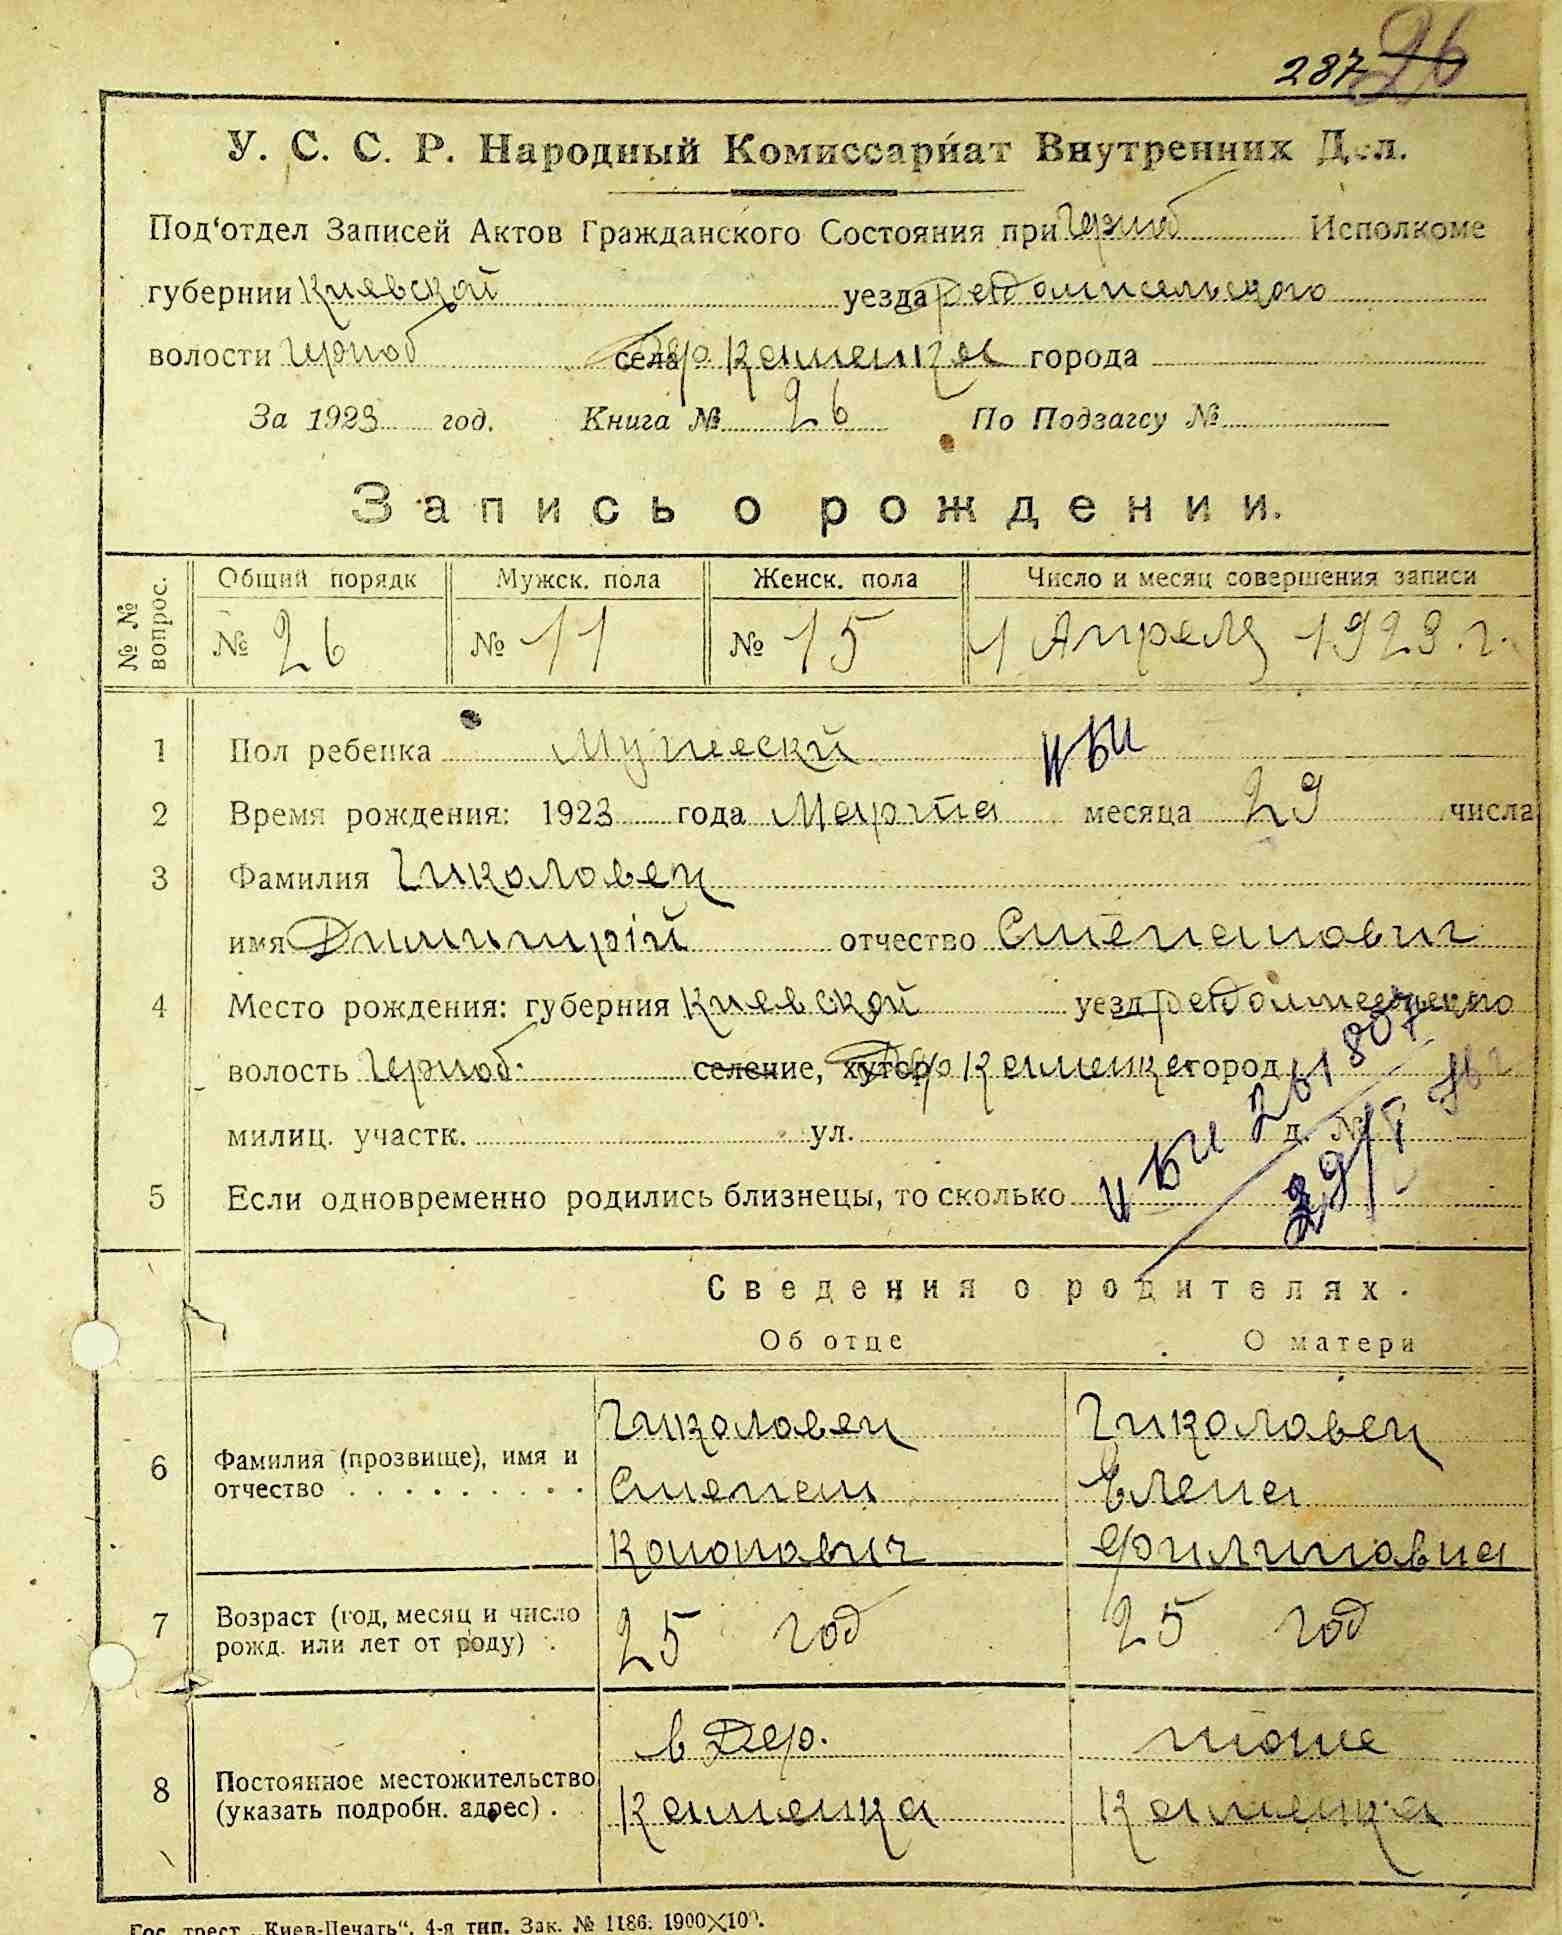 287 26
У. С. С. Р. Народный Комиссариат Внутренних Дел.
Под‘отдел Записей Актов Гражданского Состояния при Черноб Исполкоме
губернии Киевской уезда Редомисельского
волости Черноб села Дер. Каменка города
За 1923 год. Книга № 26 По Подзагсу №
Запись о рождении.
№ № вопрос. Общий порядк Мужск. пола Женск. пола Число и месяц совершения записи
№ 26 № 11 № 15 1 Апреля 1923 г.
1 Пол ребенка Мужескй ИБИ
2 Время рождения: 1923 года Марта месяца 29 числа
3 Фамилия Чиколовец
имя Димитрій отчество Степанович
4 Место рождения: губерния Киевской уезд
волость Черноб. селение, хутор Дер Каменка город
милиц. участк. ул. д. №
5 Если одновременно родились близнецы, то сколько
ИБИ 261807
Сведения о родителях.
Об отце О матери
6 Фамилия (прозвище), имя и отчество Чиколовец Чиколовец
Степан Елена
Кононович Филиповна
7 Возраст (год, месяц и число рожд. или лет от роду) 25 год 25 год
8 Постоянное местожительство (указать подробн. адрес) в Дер. тоже
Каменка Каменка
Гос. трест „Киев-Печать“. 4-я тип. Зак. № 1186. 1900×100.